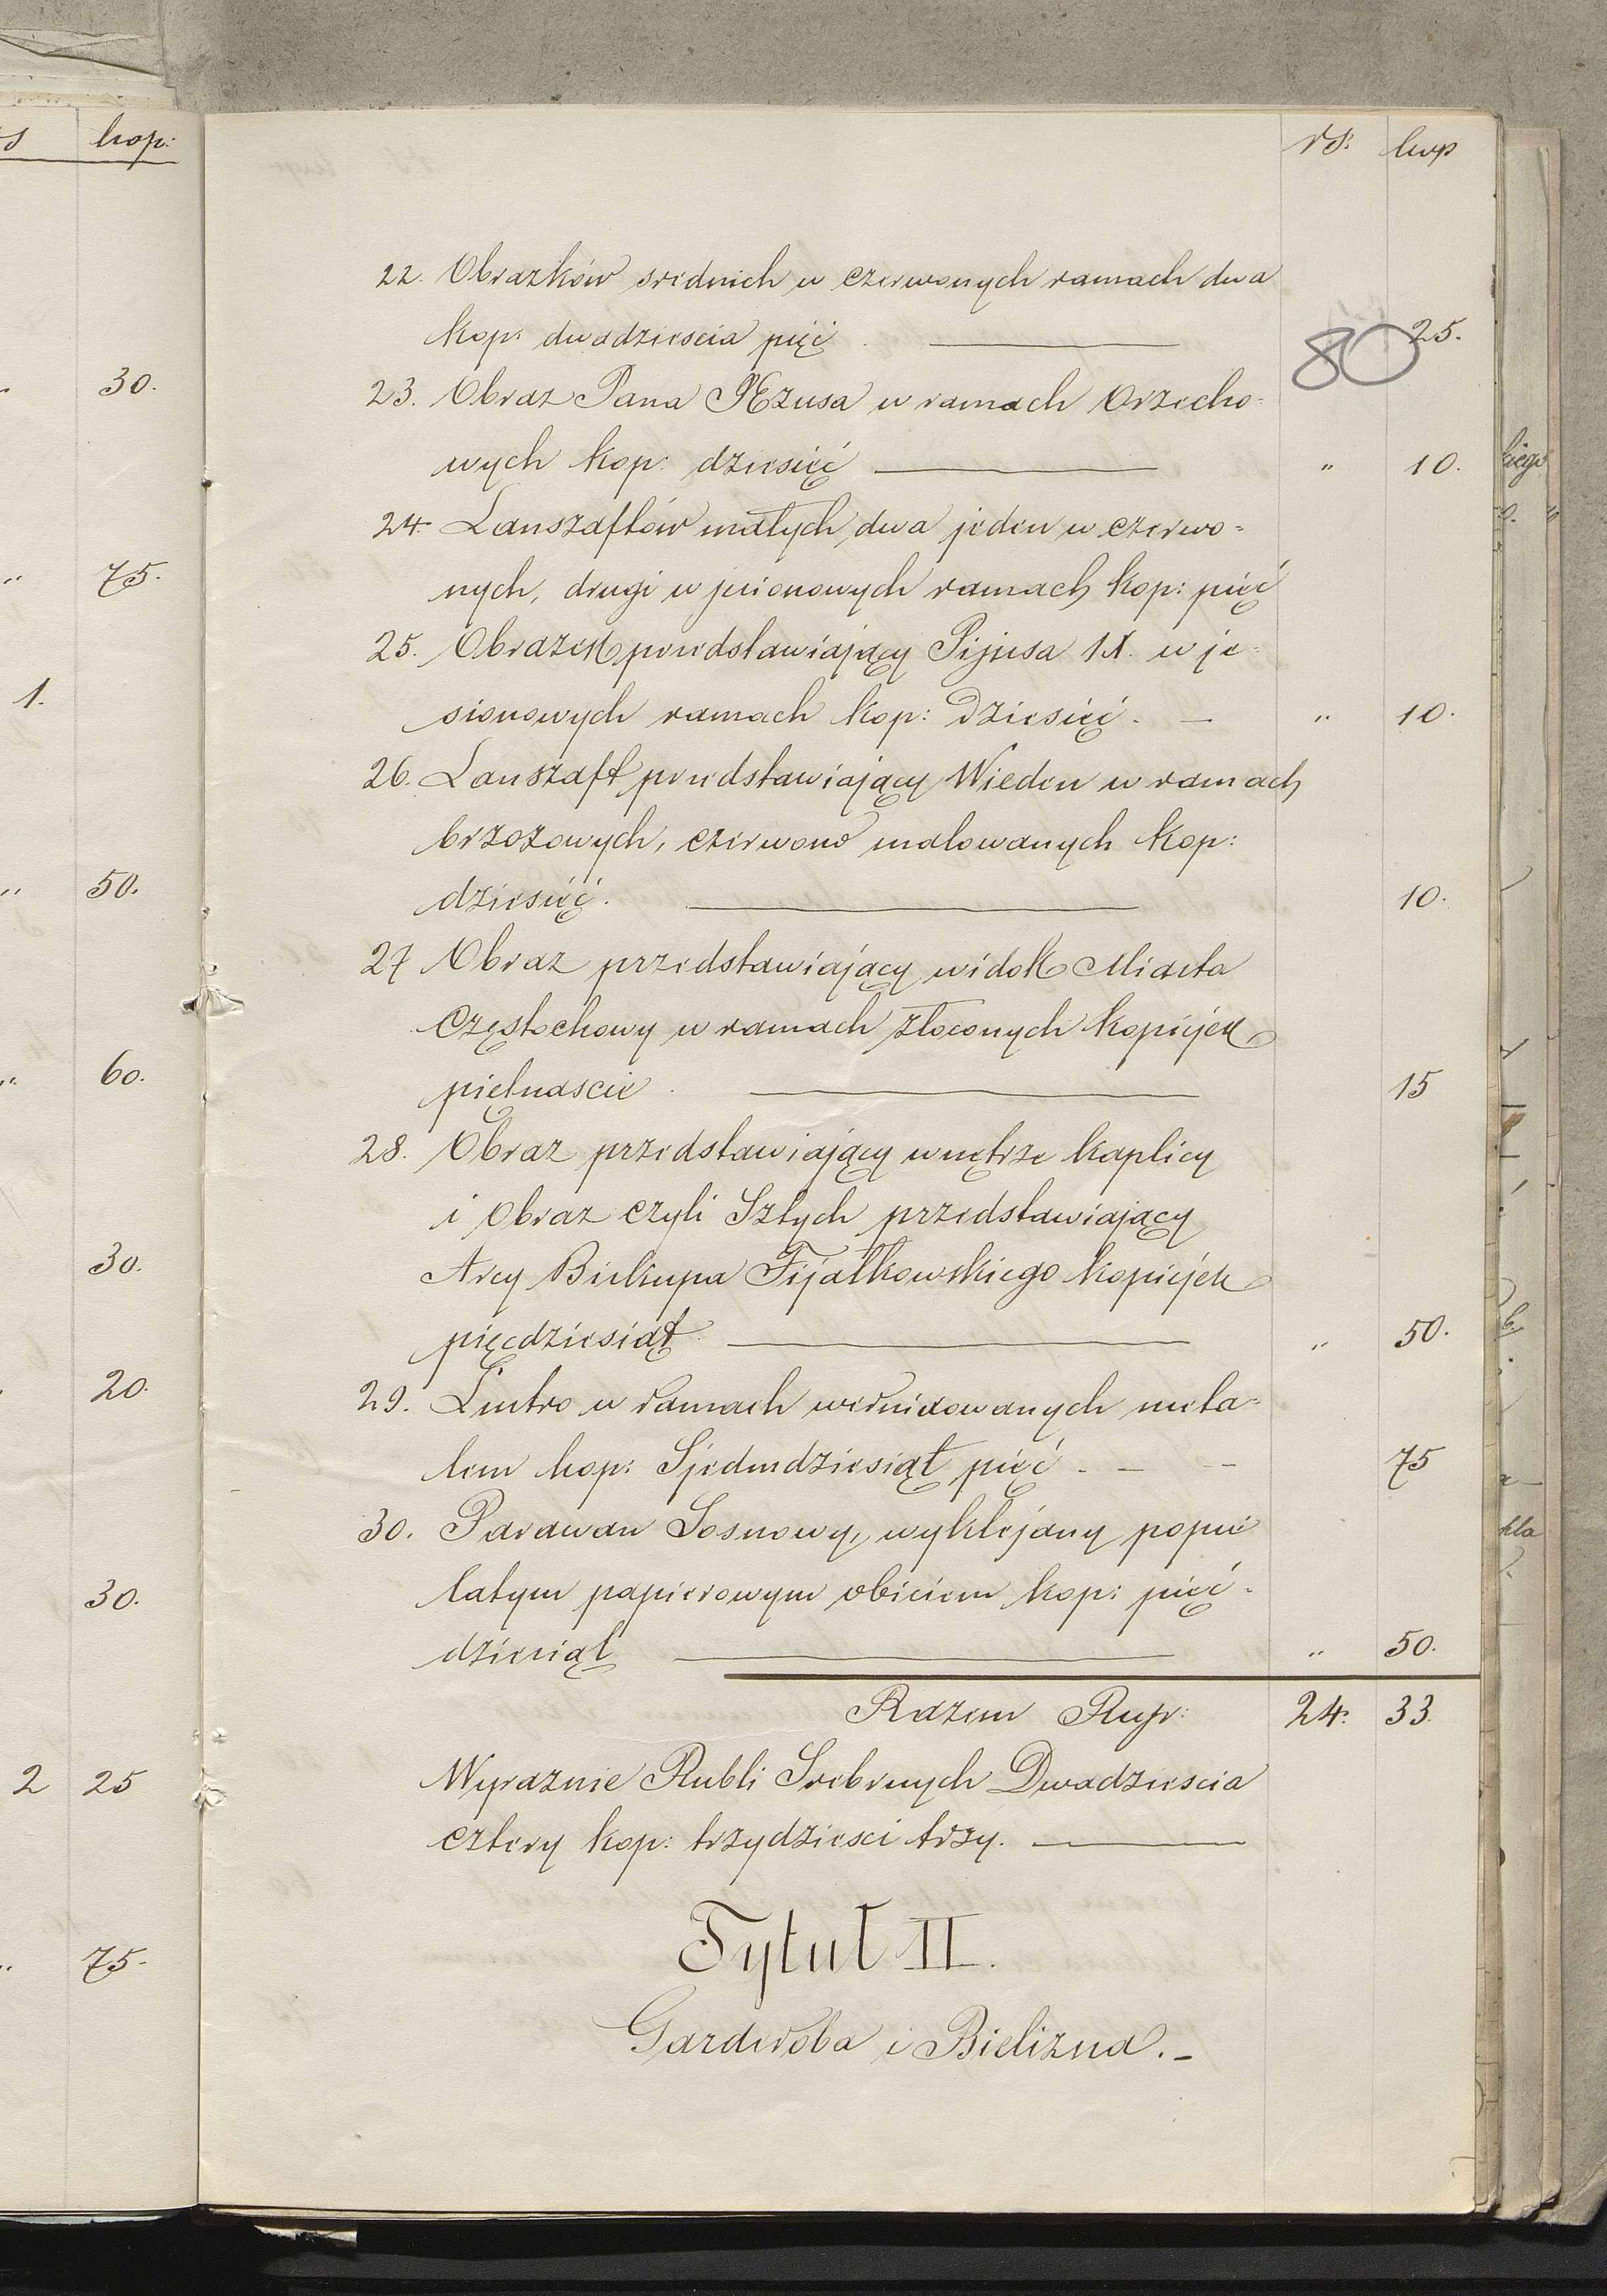 s kop:
rs: kop
22. Obrazków srednich w czerwonych ramach dwa
kop: dwadziescia pięć 25.
80
30.
23. Obraz Pana JEzusa w ramach Orzecho-
wych kop: dziesięć " 10.
24. Lanszaftów małych dwa jeden w czerwo-
nych, drugi w jesionowych ramach kop: pięć
" 75.
25. Obrazek przedstawiający Pijusa IX. w je-
sionowych ramach kop: Dziesięć. " 10.
1.
26. Lanszaft przedstawiający Wieden w ramach
brzozowych, czerwono malowanych kop:
dziesięć. 10.
" 50.
27 Obraz przedstawiający widok Miasta
Częstochowy w ramach złoconych kopiejek
piętnascie 15
" 60.
28. Obraz przedstawiający wnętrze kaplicy
i Obraz czyli Sztych przedstawiający
Arcy Biskupa Fijałkowskiego kopiejek
pięcdziesiąt " 50.
30.
29. Lustro w ramach wernixowanych meta-
lem kop: Sjedmdziesiąt pięć 75
20.
30. Parawan Sosnowy, wyklejany popie
latym papierowym obiciem kop: pięć-
dziesiąt " 50.
30.
Razem Rups: 24. 33.
Wyraznie Rubli Srebrnych Dwadziescia
cztery kop: trzydziesci trzy.
2 25
Tytuł II.
Garderoba i Bielizna.
" 75.